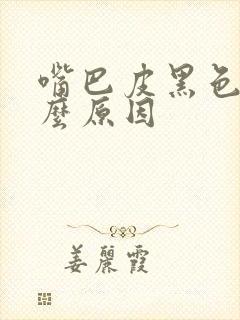 嘴巴皮黑色
麼原因
姜麗霞